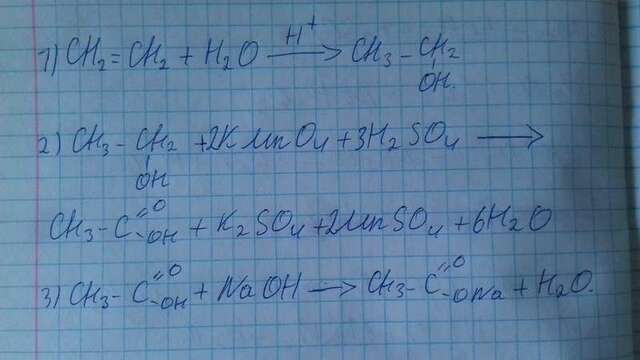 1) CH₂=CH₂ + H₂O —H⁺→ CH₃ – CH₂
OH.
2) CH₃ – CH₂ + 2KMnO₄ + 3H₂SO₄ ⟶
OH
CH₃ – C =O –OH + K₂SO₄ + 2MnSO₄ + 6H₂O
3) CH₃ – C =O –OH + NaOH ⟶ CH₃ – C =O –ONa + H₂O.